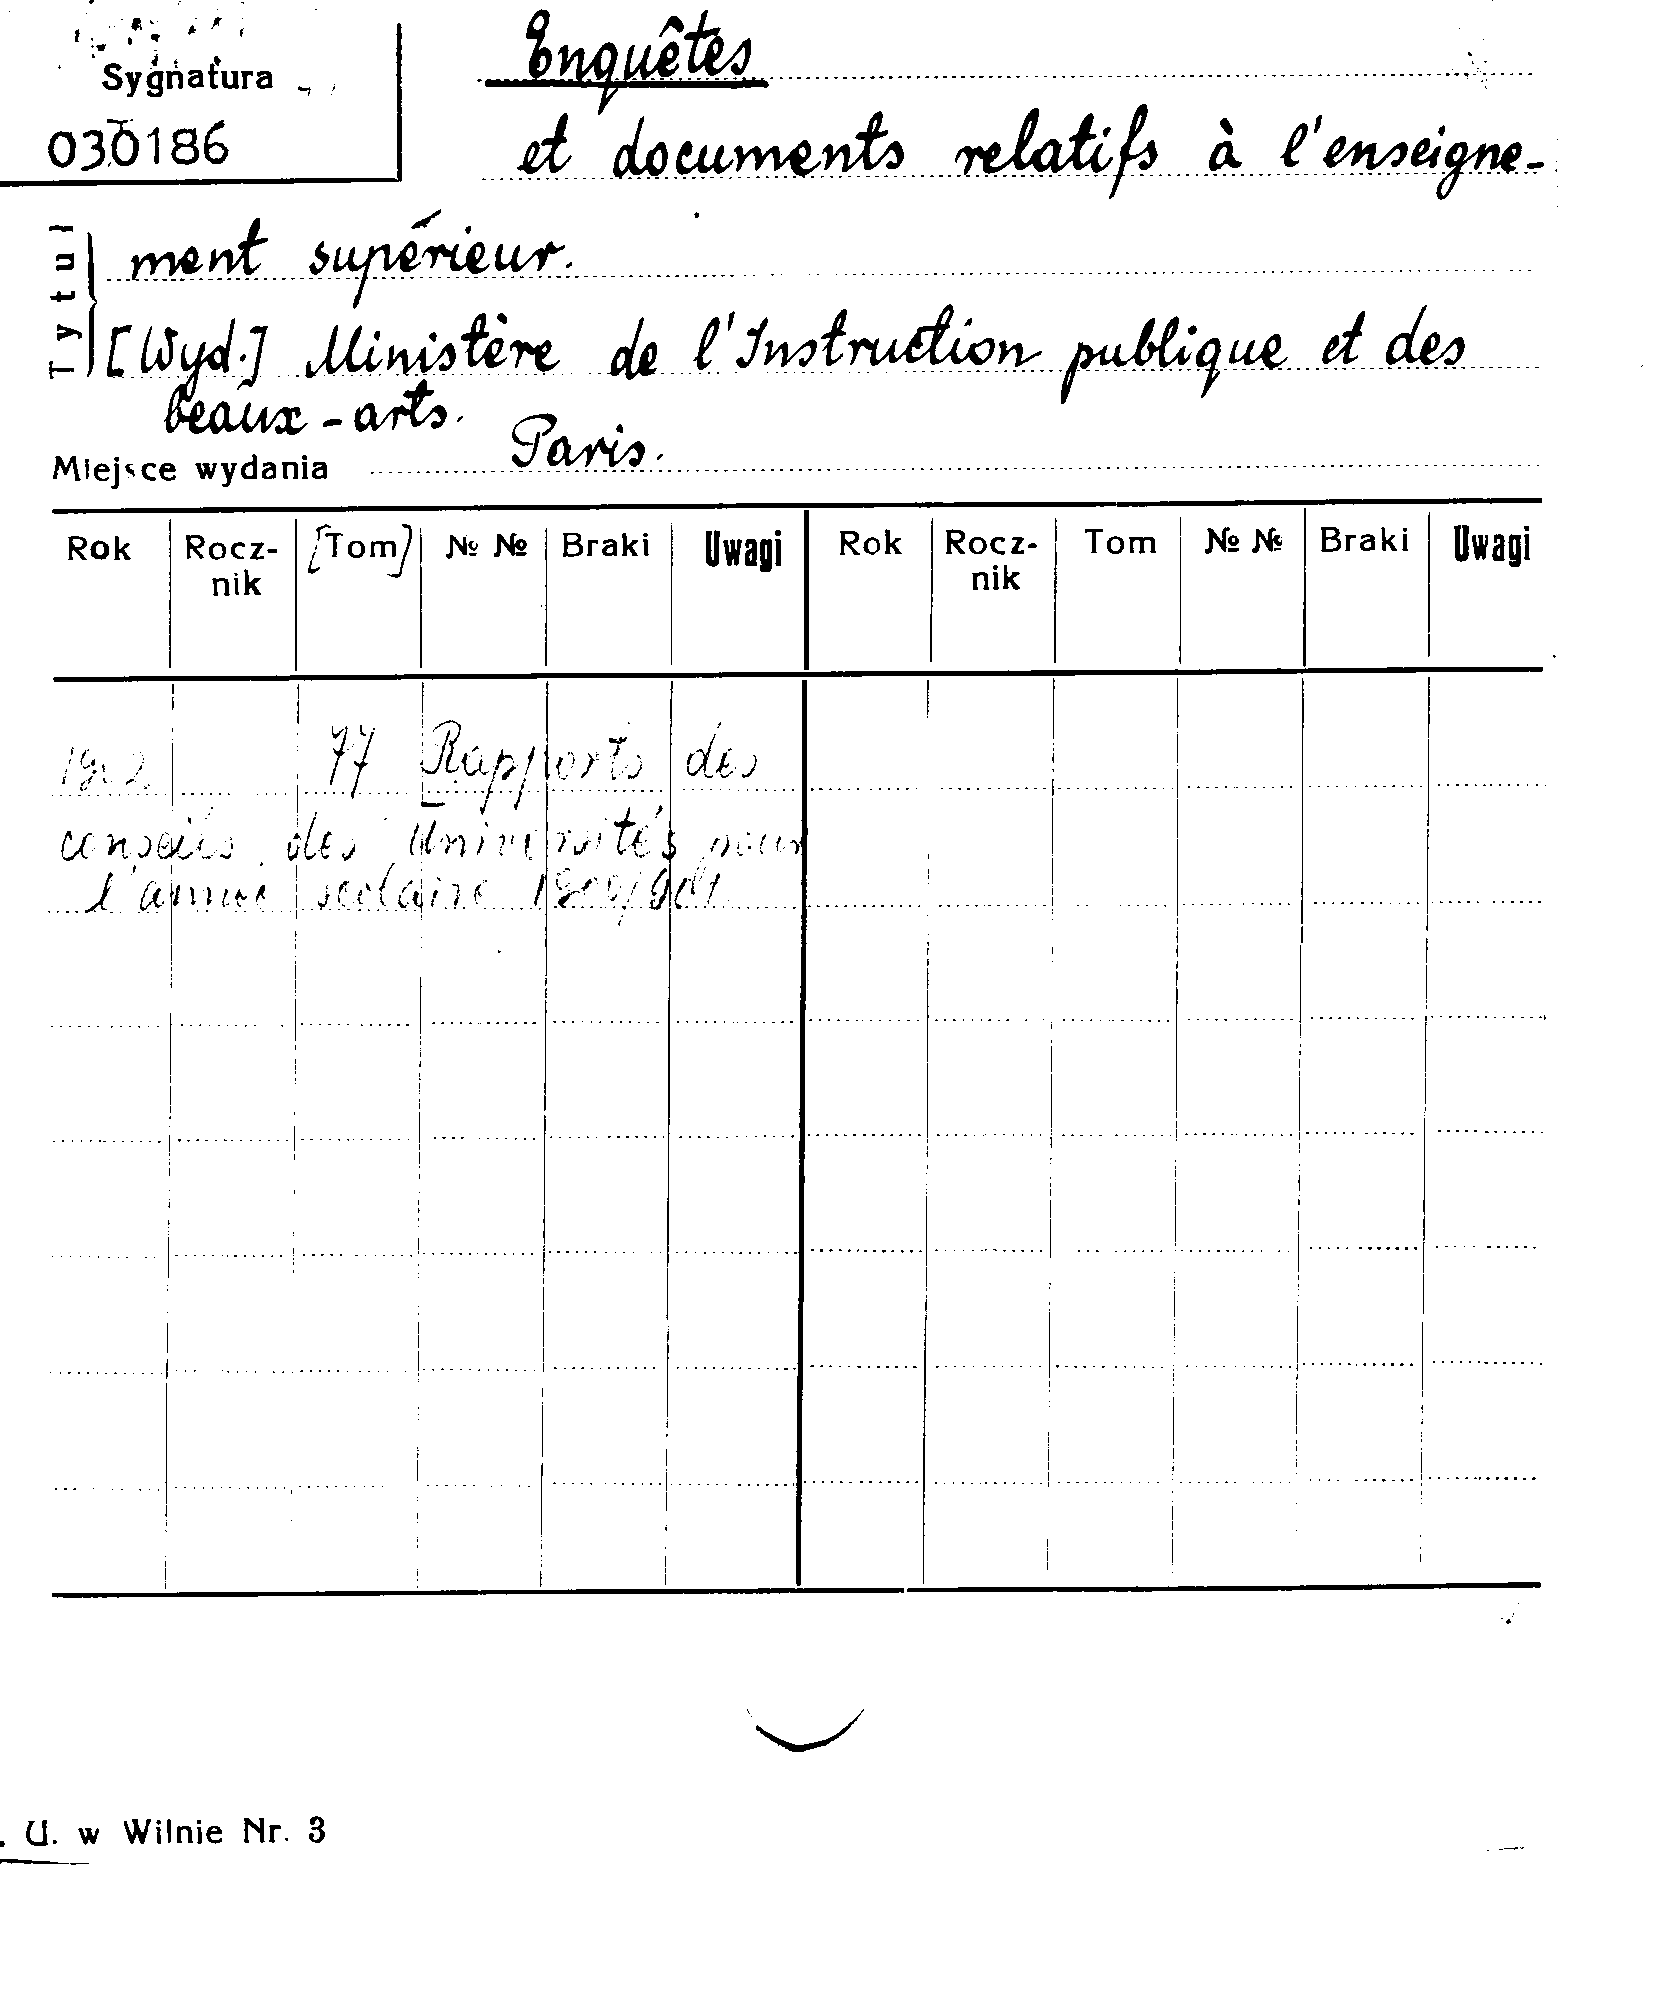 Sygnatura
030186
Enquêtes
et documents relatifs à l'enseigne-
Tytuł
ment supérieur.
[Wyd.] Ministère de l'Instruction publique et des
beaux-arts.
Miejsce wydania Paris.
Rok Rocz-nik [Tom] № № Braki Uwagi Rok Rocz-nik Tom № № Braki Uwagi
1902 77 Rapports des
conseils des Universités pour
l'année scolaire 1900/901
. U. w Wilnie Nr. 3